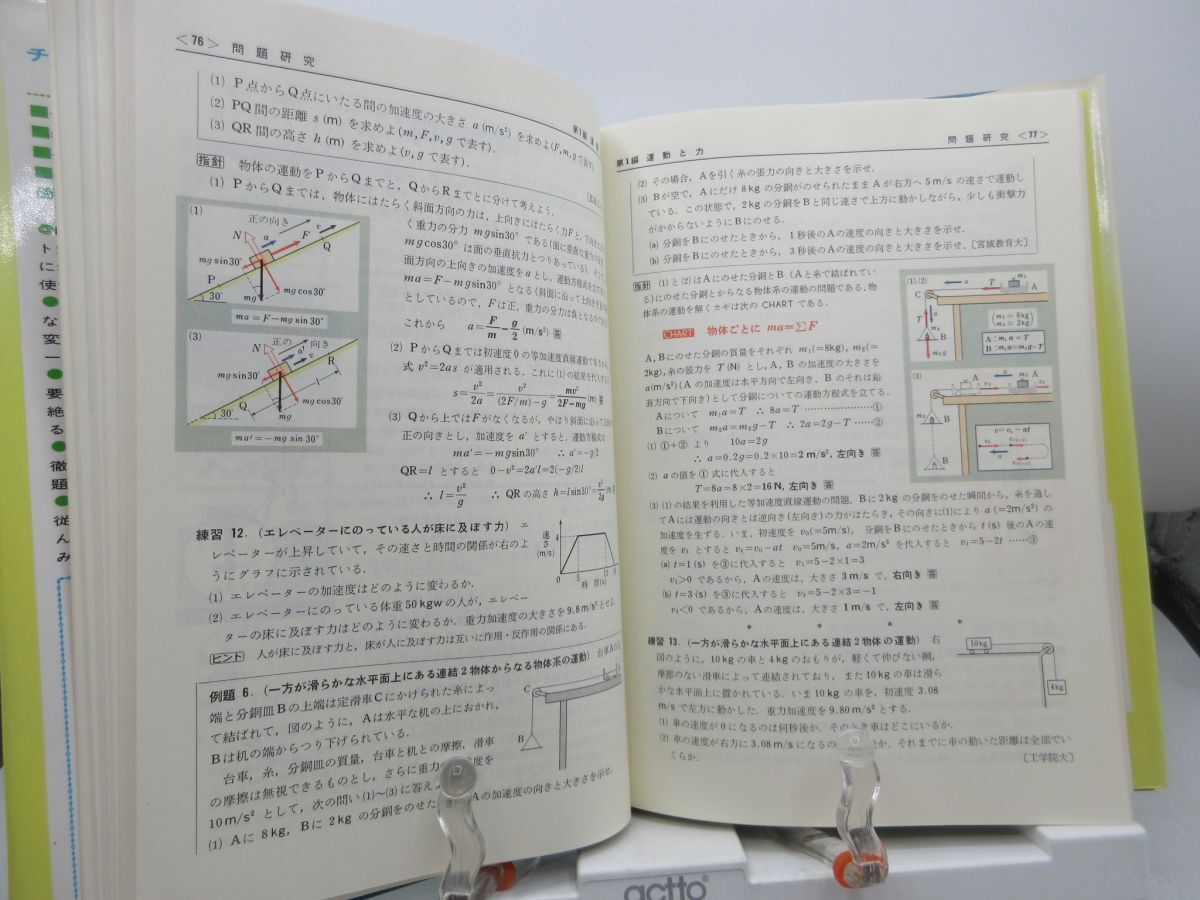 〈76〉 問題研究
(1) P点からQ点にいたる間の加速度の大きさ a (m/s²) を求めよ(F, m, g で表す).
(2) PQ間の距離 s (m) を求めよ(m, F, v, g で表す).
(3) QR間の高さ h (m) を求めよ(v, g で表す).
指針 物体の運動をPからQまでと, QからRまでとに分けて考えよう.
(1) PからQまでは, 物体にはたらく斜面方向の力は, 上向きにはたらく力Fと,
く重力の分力 mgsin30° である(面に垂直な
mgcos30° は面の垂直抗力とつりあっている).
面方向の上向きの加速度をaとし, 運動方程式を
ma=F−mgsin30° となる(斜面に沿って上向き
としているので, Fは正, 重力の分力は負となる
これから a=F/m−g/2 (m/s²) 答
(2) PからQまでは初速度0の等加速度直線運動であるから,
式 v²=2as が適用される. これに(1)の結果を代入すると
s=v²/2a=v²/((2F/m)−g)=mv²/(2F−mg) (m) 答
(3) Qから上ではFがなくなるが, やはり斜面に沿って上向きを
正の向きとし, 加速度を a′ とすると, 運動方程式は
ma′=−mgsin30° ∴ a′=−g/2
QR=l とすると 0−v²=2a′l=2(−g/2)l
∴ l=v²/g ∴ QRの高さ h=lsin30°=v²/2g (m) 答
(1)
正の向き
N
a
F
v
Q
mg sin30°
P
mg
mg cos30°
30°
ma=F−mg sin30°
(3)
正の向き
N
a′
v
R
mg sin30°
Q
mg
mg cos30°
30°
ma′=−mg sin30°
練習 12. (エレベーターにのっている人が床に及ぼす力) エ
レベーターが上昇していて, その速さと時間の関係が右のよ
うにグラフに示されている.
(1) エレベーターの加速度はどのように変わるか.
(2) エレベーターにのっている体重50kgwの人が, エレベー
ターの床に及ぼす力はどのように変わるか. 重力加速度の大きさを9.8m/s²とせよ.
ヒント 人が床に及ぼす力と, 床が人に及ぼす力は互いに作用・反作用の関係にある.
速さ(m/s)
4
0
5
13
時間(s)
例題 6. (一方が滑らかな水平面上にある連結2物体からなる物体系の運動) 台車Aの
端と分銅皿Bの上端は定滑車Cにかけられた糸によっ
て結ばれて, 図のように, Aは水平な机の上におかれ,
Bは机の端からつり下げられている.
台車, 糸, 分銅皿の質量, 台車と机との摩擦, 滑車
の摩擦は無視できるものとし, さらに重力
10m/s² として, 次の問い(1)〜(3)に答え
(1) Aに 8kg, Bに 2kgの分銅をのせた
Aの加速度の向きと大きさを示せ.
C
B
第1編 運動と力
問題研究 〈77〉
(2) その場合, Aを引く糸の張力の向きと大きさを示せ.
(3) Bが空で, Aにだけ8kgの分銅がのせられたままAが右方へ5m/sの速さで運動し
ている. この状態で, 2kgの分銅をBと同じ速さで上方に動かしながら, 少しも衝撃力
がかからないようにBにのせる.
(a) 分銅をBにのせたときから, 1秒後のAの速度の向きと大きさを示せ.
(b) 分銅をBにのせたときから, 3秒後のAの速度の向きと大きさを示せ.〔宮城教育大〕
指針 (1)と(2)はAにのせた分銅とB(Aと糸で結ばれてい
る)にのせた分銅とからなる物体系の運動の問題である. 物
体系の運動を解くカギは次の CHART である.
CHART 物体ごとに ma=ΣF
A, Bにのせた分銅の質量をそれぞれ m₁(=8kg), m₂(=
2kg), 糸の張力を T(N) とし, A, B の加速度の大きさを
a(m/s²)(A の加速度は水平方向で左向き, B のそれは鉛
直方向で下向き)として分銅についての運動方程式を立てる.
Aについて m₁a=T ∴ 8a=T ……………①
Bについて m₂a=m₂g−T ∴ 2a=2g−T ……②
(1) ①+② より 10a=2g
∴ a=0.2g=0.2×10=2 m/s², 左向き 答
(2) a の値を ① 式に代入すると
T=8a=8×2=16N, 左向き 答
(3) (1)の結果を利用した等加速度直線運動の問題. Bに2kgの分銅をのせた瞬間から, 糸を通し
てAには運動の向きとは逆向き(左向き)の力がはたらき, その向きに(1)により a(=2m/s²) の
加速度を生ずる. いま, 初速度を v₀(=5m/s), 分銅をBにのせたときから t(s) 後のAの速
度を vₜ とすると vₜ=v₀−at v₀=5m/s, a=2m/s² を代入すると vₜ=5−2t ……③
(a) t=1(s) を③に代入すると v₁=5−2×1=3
v₁>0 であるから, Aの速度は, 大きさ 3m/s で, 右向き 答
(b) t=3(s) を③に代入すると v₃=5−2×3=−1
v₃<0 であるから, Aの速度は, 大きさ 1m/s で, 左向き 答
(1),(2)
C
a
T
m₁
A
T
a
m₂
B
m₂g
(m₁=8kg
m₂=2kg)
A: m₁a=T
B: m₂a=m₂g−T
(3)
A
B
v=v₀−at
* * * *
練習 13. (一方が滑らかな水平面上にある連結2物体の運動) 右
図のように, 10kgの車と4kgのおもりが, 軽くて伸びない綱,
摩擦のない滑車によって連結されており, また10kgの車は滑ら
かな水平面上に置かれている. いま10kgの車を, 初速度 3.08
m/sで左方に動かした. 重力加速度を9.80m/s²とする.
(1) 車の速度が0になるのは何秒後か. そのとき車はどこにいるか.
(2) 車の速度が右方に3.08m/sになるの
か, それまでに車の動いた距離は全部でい
くらか.
〔工学院大〕
10kg
4kg
actto